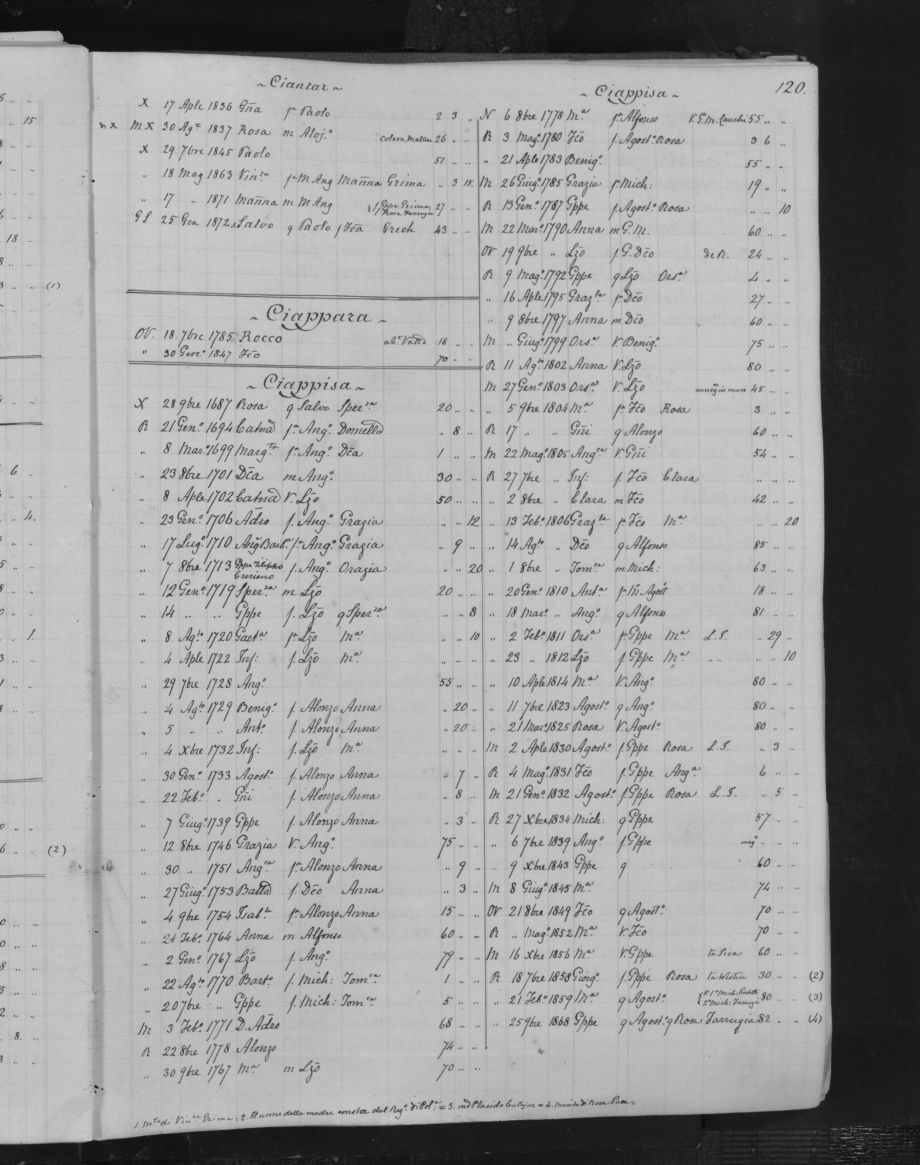 120.
~ Ciantar ~
X 17 Aple 1836 Gña fª Paolo 2 3 ..
M X 30 Agto 1837 Rosa m Aloj.º 26 .. ..
X 29 7bre 1845 Paolo 51 .. ..
„ 18 Mag 1863 Vin.za fª M Ang Mañna Grima .. 3 15.
„ 17 „ 1871 Mañna m M Ang 27 .. ..
G S 25 Gen 1872 Salvo q Paolo f Fca Grech 43 .. ..
~ Ciappara ~
OV. 18 7bre 1785 Rocco 18 .. ..
„ 30 Gen.º 1847 Fco 70 .. ..
~ Ciappisa ~
X 28 9bre 1687 Rosa q Salvo Sper.za 20 .. ..
R 21 Gen.º 1694 Catna fª Ang.º Domclla .. 8 ..
„ 8 Mar.º 1699 Marg.ta fª Ang.º Dca 1 .. ..
„ 23 8bre 1701 Dca m Ang.º 30 .. ..
„ 8 Aple 1702 Catna V. Lzo 50 .. ..
„ 23 Gen.º 1706 Adreo f. Ang.º Grazia .. .. 12
„ 17 Lug.º 1710 Ang Barb.ª fª Ang.º Grazia .. 9 ..
„ 7 8bre 1713 Gppe Filippo f. Ang.º Grazia .. .. 20
„ 12 Gen.º 1719 Sper.za m Lzo 20 .. ..
„ 14 „ „ Gppe f. Lzo q Sper.za .. .. 8
„ 8 Ag.to 1720 Gaet.a fª Lzo Mª .. .. 10
„ 4 Aple 1722 Inf: f. Lzo Mª .. .. ..
„ 29 7bre 1728 Ang.º 55 .. ..
„ 4 Ag.to 1729 Benig.º f Alonzo Anna .. 20 ..
„ 5 „ „ Ant.º f. Alonzo Anna .. 20 ..
„ 4 Xbre 1732 Inf: f. Lzo Mª .. .. ..
„ 30 Gen.º 1733 Agost.º f. Alonzo Anna .. 7 ..
„ 22 Feb.º „ Gñi f. Alonzo Anna .. 8 ..
„ 7 Giug.º 1739 Gppe f. Alonzo Anna .. 3 ..
„ 12 8bre 1746 Grazia V. Ang.º 75 .. ..
„ 30 „ 1751 Ang.ca fª Alonzo Anna .. 9 ..
„ 27 Giug.º 1753 Batta f. Dco Anna .. 3 ..
„ 4 9bre 1754 Isab.ta fª Alonzo Anna 15 .. ..
„ 24 Feb.º 1764 Anna m Alfonso 60 .. ..
„ 2 Gen.º 1767 Lzo f. Ang.º 79 .. ..
„ 22 Ag.to 1770 Bart.º f. Mich: Tom.ca 1 .. ..
„ 20 7bre „ Gppe f. Mich: Tom.ca 5 .. ..
M 3 Feb.º 1771 D. Adreo 68 .. ..
R 22 8bre 1778 Alonzo 74 .. ..
„ 30 9bre 1767 Mª m Lzo 70 .. ..
~ Ciappisa ~
N 6 8bre 1778 Mª fª Alfonso V. G. M. Cauchi 55 .. ..
R 3 Mag.º 1780 Fco f. Agost.º Rosa 3 6 ..
„ 21 Aple 1783 Benig.º 55 .. ..
M 26 Giug.º 1785 Grazia fª Mich: 19 .. ..
R 13 Gen.º 1787 Gppe f. Agost.º Rosa .. .. 10
M 22 Mar.º 1790 Anna m G. M. 60 .. ..
OV 19 9bre „ Lzo f. G. Dco de R. 24 .. ..
R 9 Mag.º 1792 Gppe q Lzo Ors.ª 4 .. ..
„ 16 Aple 1795 Graz.ta fª Dco 27 .. ..
„ 9 8bre 1797 Anna m Dco 60 .. ..
M „ Giug.º 1799 Ors.ª V. Benig.º 75 .. ..
R 11 Ag.to 1802 Anna V. Lzo 80 .. ..
M 27 Gen.º 1803 Ors.ª V. Lzo 45 .. ..
„ 5 9bre 1804 Mª fª Fco Rosa 3 .. ..
R 17 „ „ Gñi q Alonzo 60 .. ..
M 22 Mag.º 1805 Ang.ca V. Gñi 54 .. ..
R 27 7bre „ Inf: f. Fco Clara .. .. ..
„ 2 8bre „ Clara m Fco 42 .. ..
„ 13 Feb.º 1806 Graz.ta fª Fco Mª .. .. 20
„ 14 Ag.to „ Dco q Alfonso 85 .. ..
„ 1 8bre „ Tom.ca m Mich: 63 .. ..
„ 20 Gen.º 1810 Ant.a 18 .. ..
„ 18 Mar.º „ Ang.º q Alfonso 81 .. ..
„ 2 Feb.º 1811 Ors.ª fª Gppe Mª L. S. .. 29 ..
„ 23 „ 1812 Lzo f. Gppe Mª .. .. 10
„ 10 Aple 1814 Mª V. Ang.º 80 .. ..
„ 11 7bre 1823 Agost.º q Ang.º 80 .. ..
„ 21 Mar.º 1825 Rosa V. Agost.º 80 .. ..
M 2 Aple 1830 Agost.º f. Gppe Rosa L. S. .. 3 ..
R 4 Mag.º 1831 Fco f. Gppe Ang.ª 6 .. ..
M 21 Gen.º 1832 Agost.º f. Gppe Rosa L. S. .. 5 ..
R 27 Xbre 1834 Mich: q Gppe 57 .. ..
„ 6 7bre 1839 Ang.º f Gppe
„ 9 Xbre 1843 Gppe q 60 .. ..
M 8 Giug.º 1845 Mª 74 .. ..
OV 21 8bre 1849 Fco q Agost.º 70 .. ..
R „ Mag.º 1852 Mª V. Fco 70 .. ..
M 16 Xbre 1856 Mª V. Gppe 60 .. ..
R 18 7bre 1858 Giorg.º f. Gppe Rosa 30 .. .. (2)
„ 21 Feb.º 1859 Mª q Agost.º 80 .. .. (3)
„ 25 9bre 1868 Gppe q Agost.º q Rosa Farrugia 82 .. .. (4)